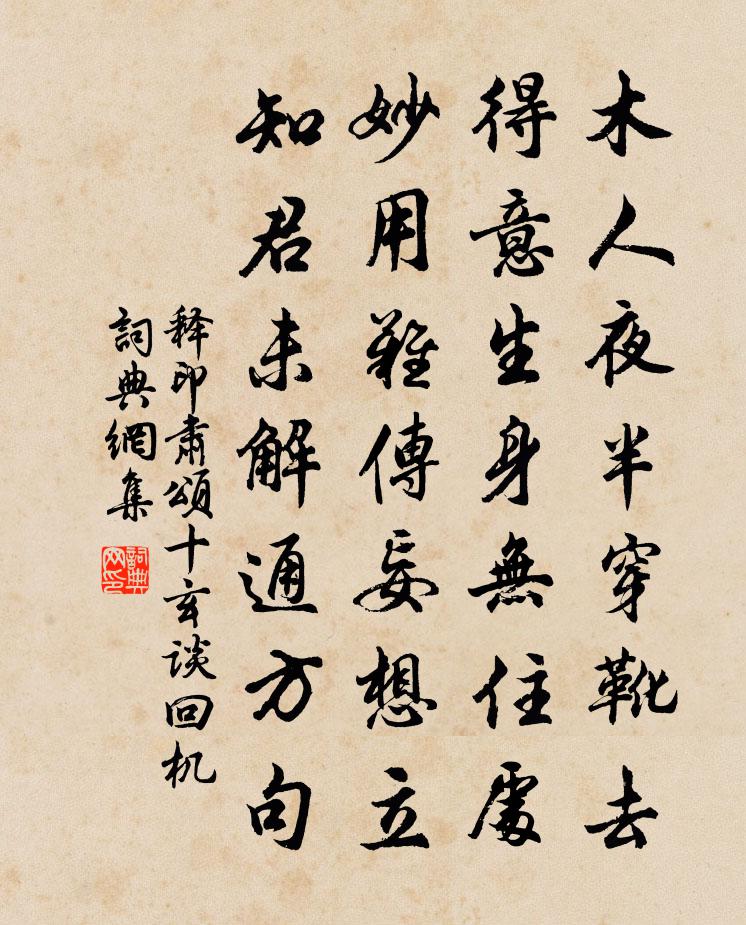 木人夜半穿靴去
得意生身無住處
妙用難傳妄想立
知君未解通方句
释印肃頌十玄談回机
詞典網集
詞典网印